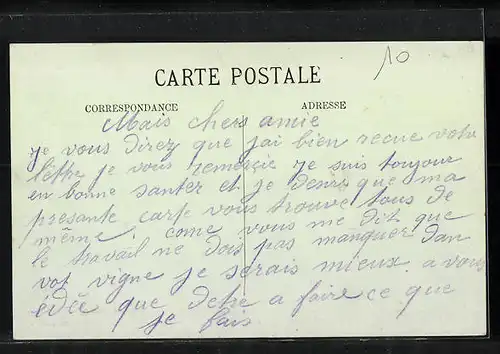 10
CARTE POSTALE
CORRESPONDANCE
ADRESSE
Mais chers amie
je vous direz que j'ai bien recue votre
lettre je vous remercie je suis toujour
en bonne santer et je desire que ma
presante carte vous trouve tous de
même. come vous me dit que
le travail ne dois pas manquer dan
vot vigne je serais mieux a vous
édée que detre a faire ce que
je fais